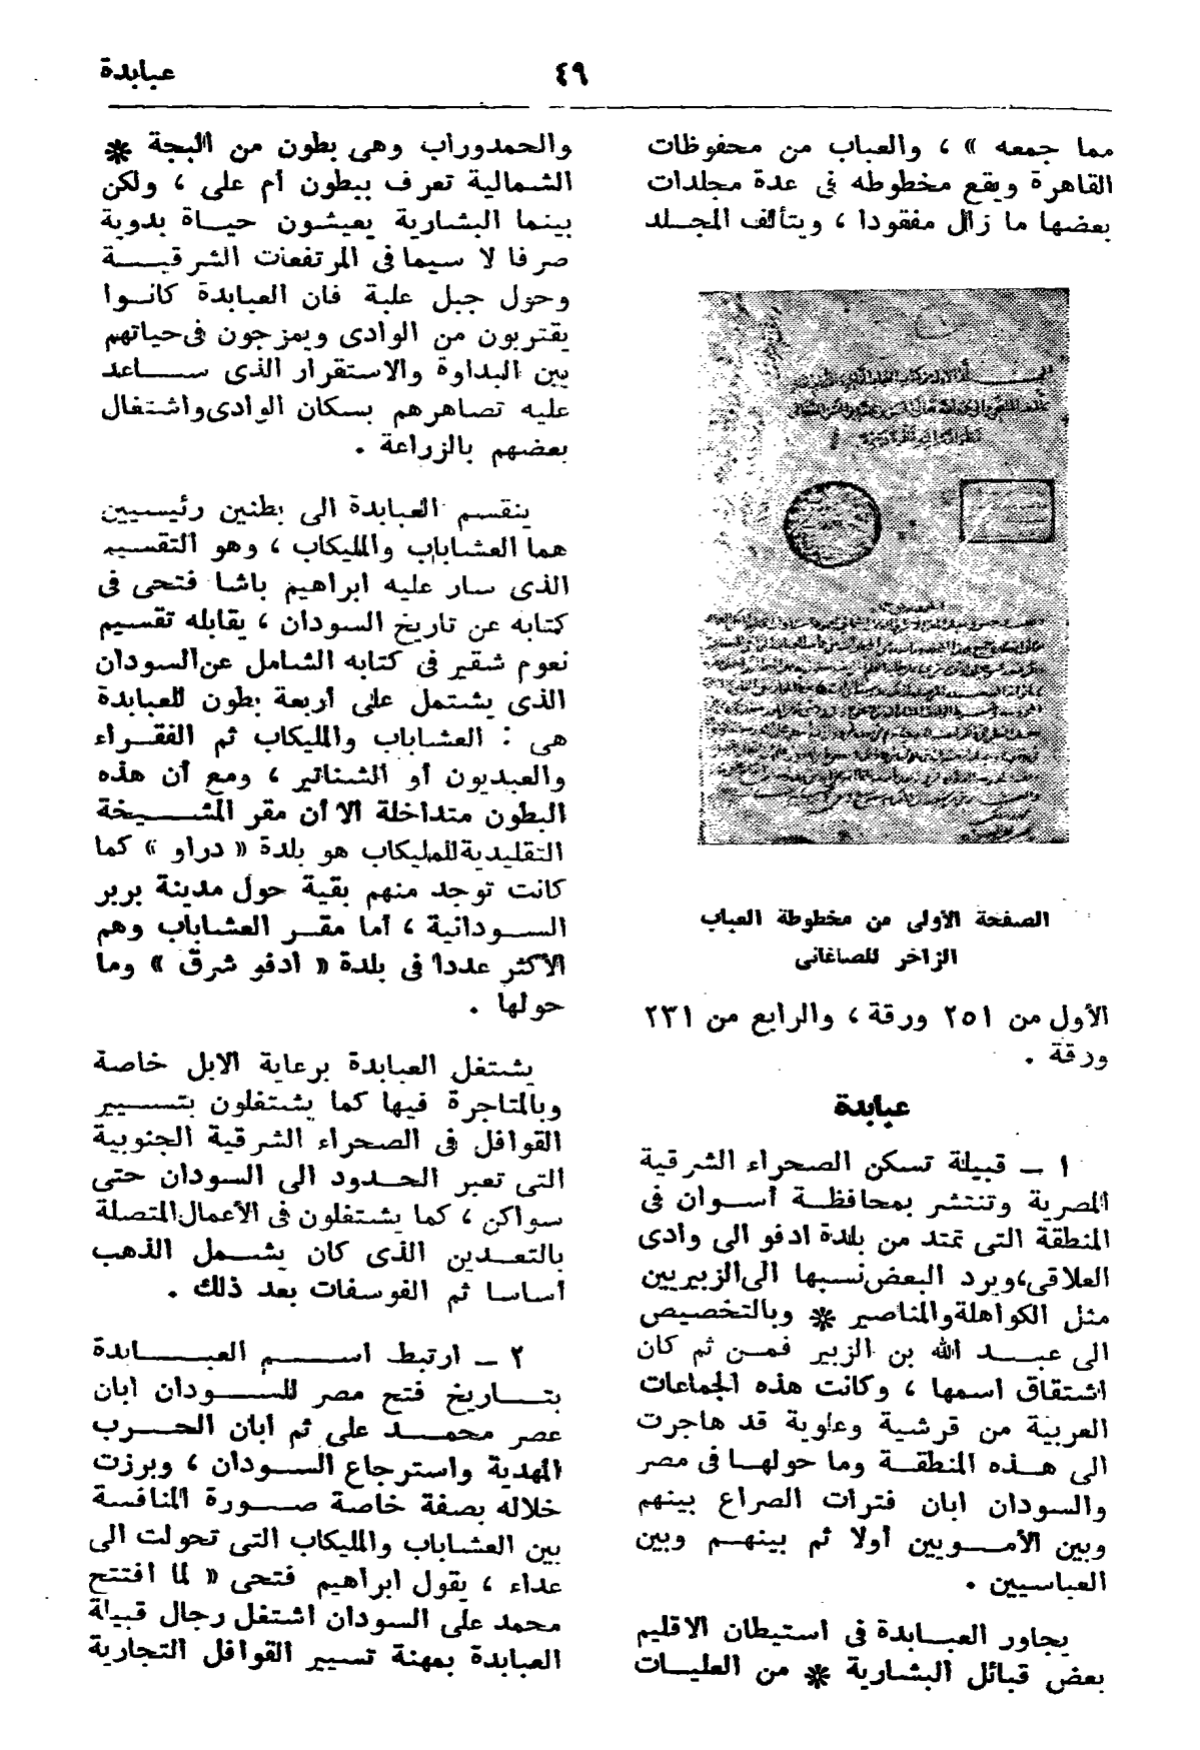 عبابدة
٤٩
مما جمعه » ، والعباب من محفوظات
القاهرة ويقع مخطوطه فى عدة مجلدات
بعضها ما زال مفقودا ، ويتألف المجلد
الصفحة الأولى من مخطوطة العباب
الزاخر للصاغانى
الأول من ٢٥١ ورقة ، والرابع من ٢٣١
ورقة .
عبابدة
١ – قبيلة تسكن الصحراء الشرقية
المصرية وتنتشر بمحافظة أسوان فى
المنطقة التى تمتد من بلدة ادفو الى وادى
العلاقى، ويرد البعض نسبها الى الزبيريين
مثل الكواهلة والمناصير * وبالتخصيص
الى عبد الله بن الزبير فمن ثم كان
اشتقاق اسمها ، وكانت هذه الجماعات
العربية من قرشية وعلوية قد هاجرت
الى هذه المنطقة وما حولها فى مصر
والسودان ابان فترات الصراع بينهم
وبين الأمويين أولا ثم بينهم وبين
العباسيين .
يجاور العبابدة فى استيطان الاقليم
بعض قبائل البشارية * من العليات
والحمدوراب وهى بطون من البجة *
الشمالية تعرف ببطون أم على ، ولكن
بينما البشارية يعيشون حياة بدوية
صرفا لا سيما فى المرتفعات الشرقية
وحول جبل علبة فان العبابدة كانوا
يقتربون من الوادى ويمزجون فى حياتهم
بين البداوة والاستقرار الذى ساعد
عليه تصاهرهم بسكان الوادى واشتغال
بعضهم بالزراعة .
ينقسم العبابدة الى بطنين رئيسيين
هما العشاباب والمليكاب ، وهو التقسيم
الذى سار عليه ابراهيم باشا فتحى فى
كتابه عن تاريخ السودان ، يقابله تقسيم
نعوم شقير فى كتابه الشامل عن السودان
الذى يشتمل على أربعة بطون للعبابدة
هى : العشاباب والمليكاب ثم الفقراء
والعبديون أو الشناتير ، ومع أن هذه
البطون متداخلة الا أن مقر المشيخة
التقليدية للمليكاب هو بلدة « دراو » كما
كانت توجد منهم بقية حول مدينة بربر
السودانية ، أما مقر العشاباب وهم
الأكثر عددا فى بلدة « ادفو شرق » وما
حولها .
يشتغل العبابدة برعاية الابل خاصة
وبالمتاجرة فيها كما يشتغلون بتسيير
القوافل فى الصحراء الشرقية الجنوبية
التى تعبر الحدود الى السودان حتى
سواكن ، كما يشتغلون فى الأعمال المتصلة
بالتعدين الذى كان يشمل الذهب
أساسا ثم الفوسفات بعد ذلك .
٢ – ارتبط اسم العبابدة
بتاريخ فتح مصر للسودان ابان
عصر محمد على ثم ابان الحرب
المهدية واسترجاع السودان ، وبرزت
خلاله بصفة خاصة صورة المنافسة
بين العشاباب والمليكاب التى تحولت الى
عداء ، يقول ابراهيم فتحى « لما افتتح
محمد على السودان اشتغل رجال قبيلة
العبابدة بمهنة تسيير القوافل التجارية